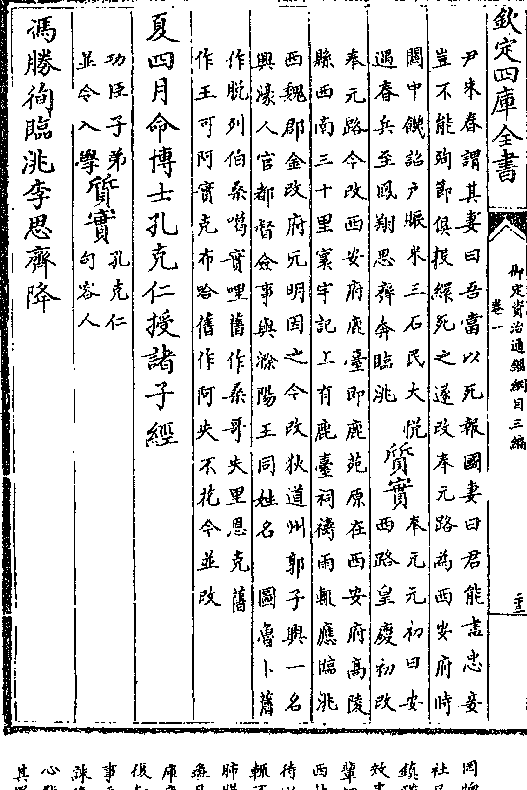 欽定四庫全書
御定資治通鑑綱目三編
卷一
尹来春謂其妻曰吾當以死報國妻曰君能盡忠妾
豈不能殉節俱投繯死之遂改奉元路為西安府時
關中饑詔戶賑米三石民大悦
遇春兵至鳳翔思齊奔臨洮
質實
奉元元初曰安
西路皇慶初改
奉元路今改西安府鹿臺即鹿苑原在西安府高陵
縣西南三十里寰宇記上有鹿臺祠禱雨輒應臨洮
西魏郡金改府元明因之今改狄道州郭子興一名
興濠人官都督僉事與滁陽王同姓名 圖魯卜舊
作脱列伯桑噶實哩舊作桑哥失里恩克舊
作王可阿實克布哈舊作阿失不花今並改
夏四月命博士孔克仁授諸子經
功臣子弟
並令入學
質實
孔克仁
句容人
馮勝徇臨洮李思齊降